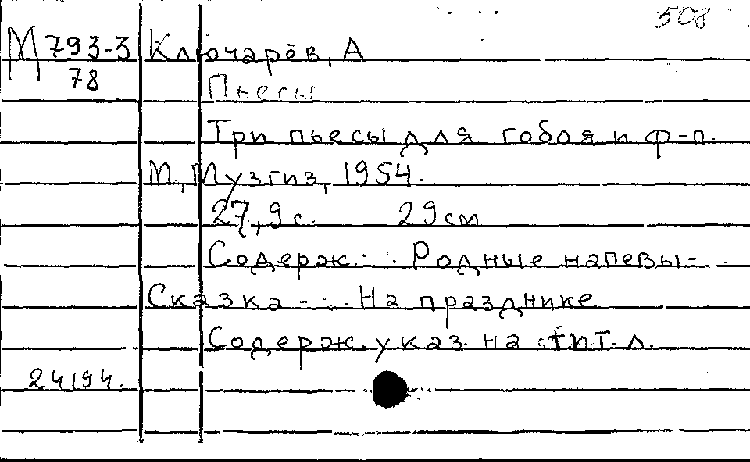 508
М 793-3 Ключарёв, А
78
Пьесы
Три пьесы для гобоя и ф-п.
М., Музгиз, 1954.
27, 9 с. 29 см
Содерж.: Родные напевы -
Сказка - На празднике
Содерж. указ. на тит. л.
24194.